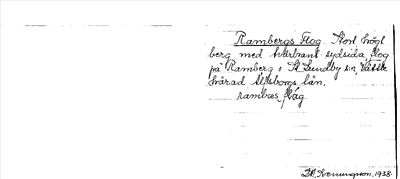 Rambergs Flog. Stort högt
berg med tvärbrant sydsida, flog
på Ramberg i St. Lundby sn, Vättle
härad Älfsborgs län.
rambæs flåg
1938.